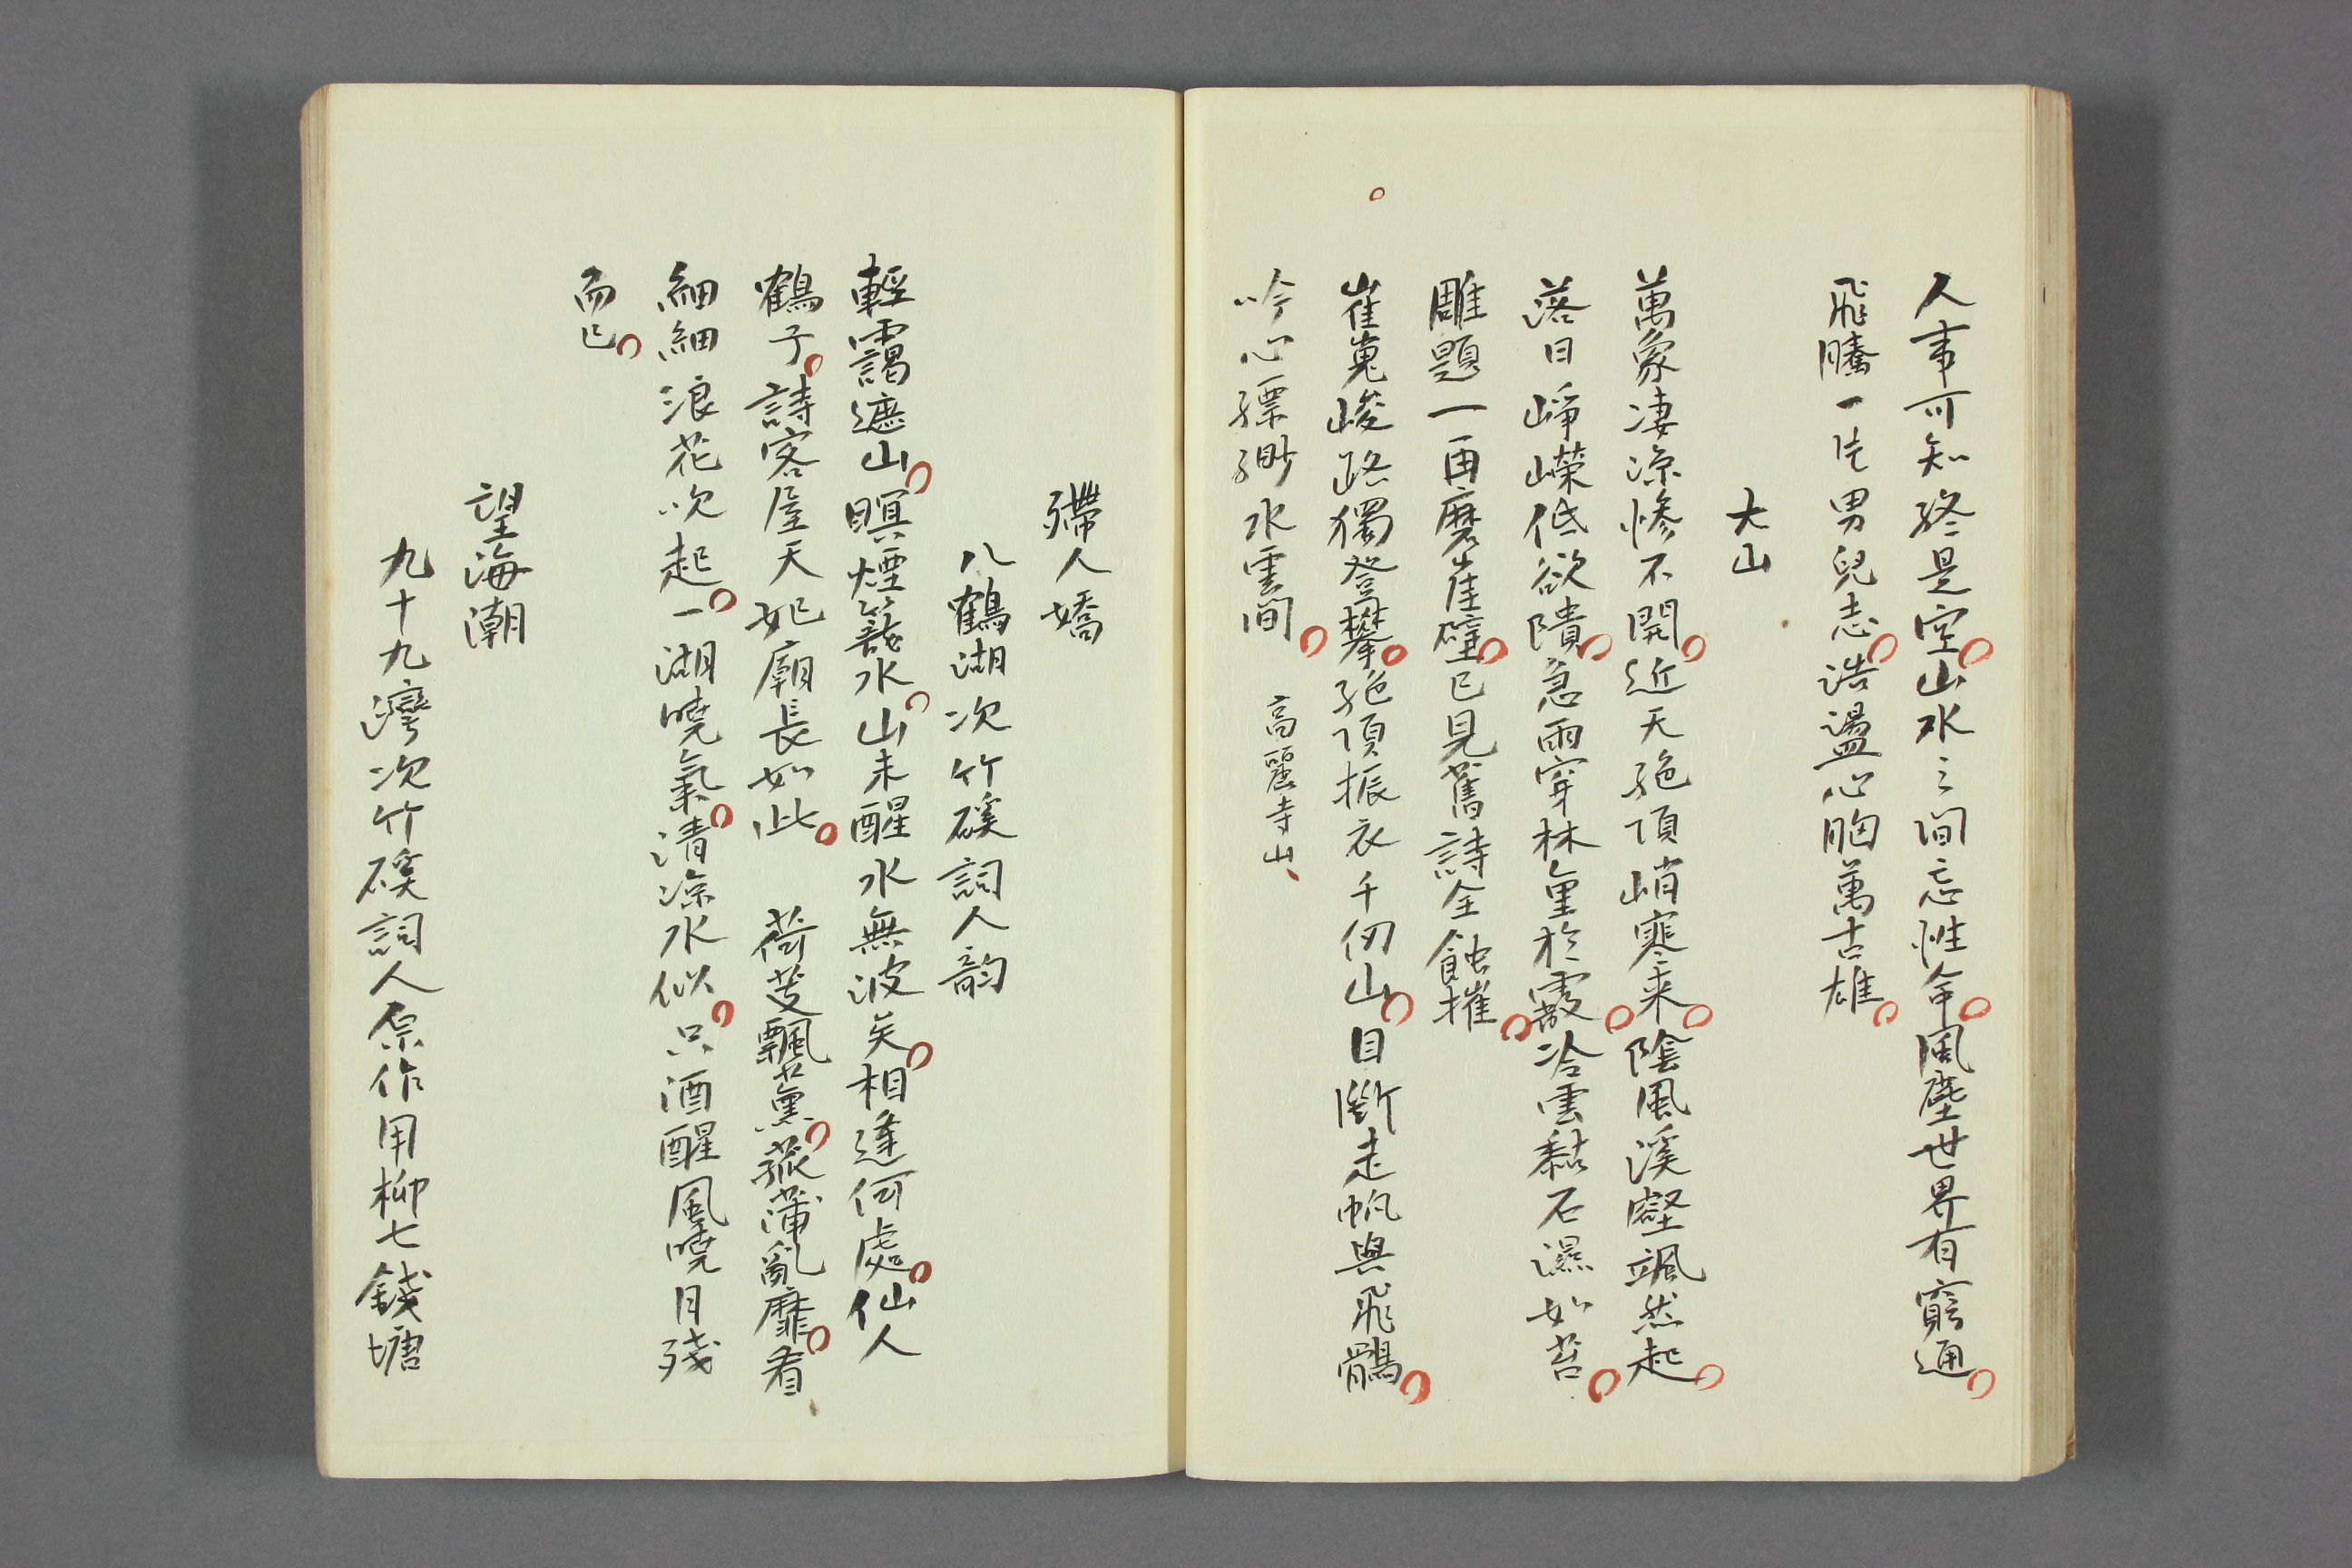 人事可知終是空山水之間忘性命風塵世界有窮通
飛騰一片男兒志浩盪心胸萬古雄
大山
萬象凄涼慘不開近天絶頂峭寒来陰風溪壑颯然起
落日崢嶸低欲隤急雨穿林重於霰冷雲黏石濕如苔
雕題一再磨崖壁已見舊詩全蝕摧
崔嵬峻路獨登攀絶頂振衣千仞山目斷走帆與飛鶻
吟心縹緲水雲間 高麗寺山
殢人嬌
八鶴湖次竹磎詞人韵
輕靄遮山暝煙籠水山未醒水無波矣相逢何處仙人
鶴子詩客屋天妃廟長如此 荷芰飄薰菰蒲亂靡看
細細浪花吹起一湖曉氣清涼水似只酒醒風曉月殘
而已
望海潮
九十九灣次竹磎詞人原作用柳七錢塘